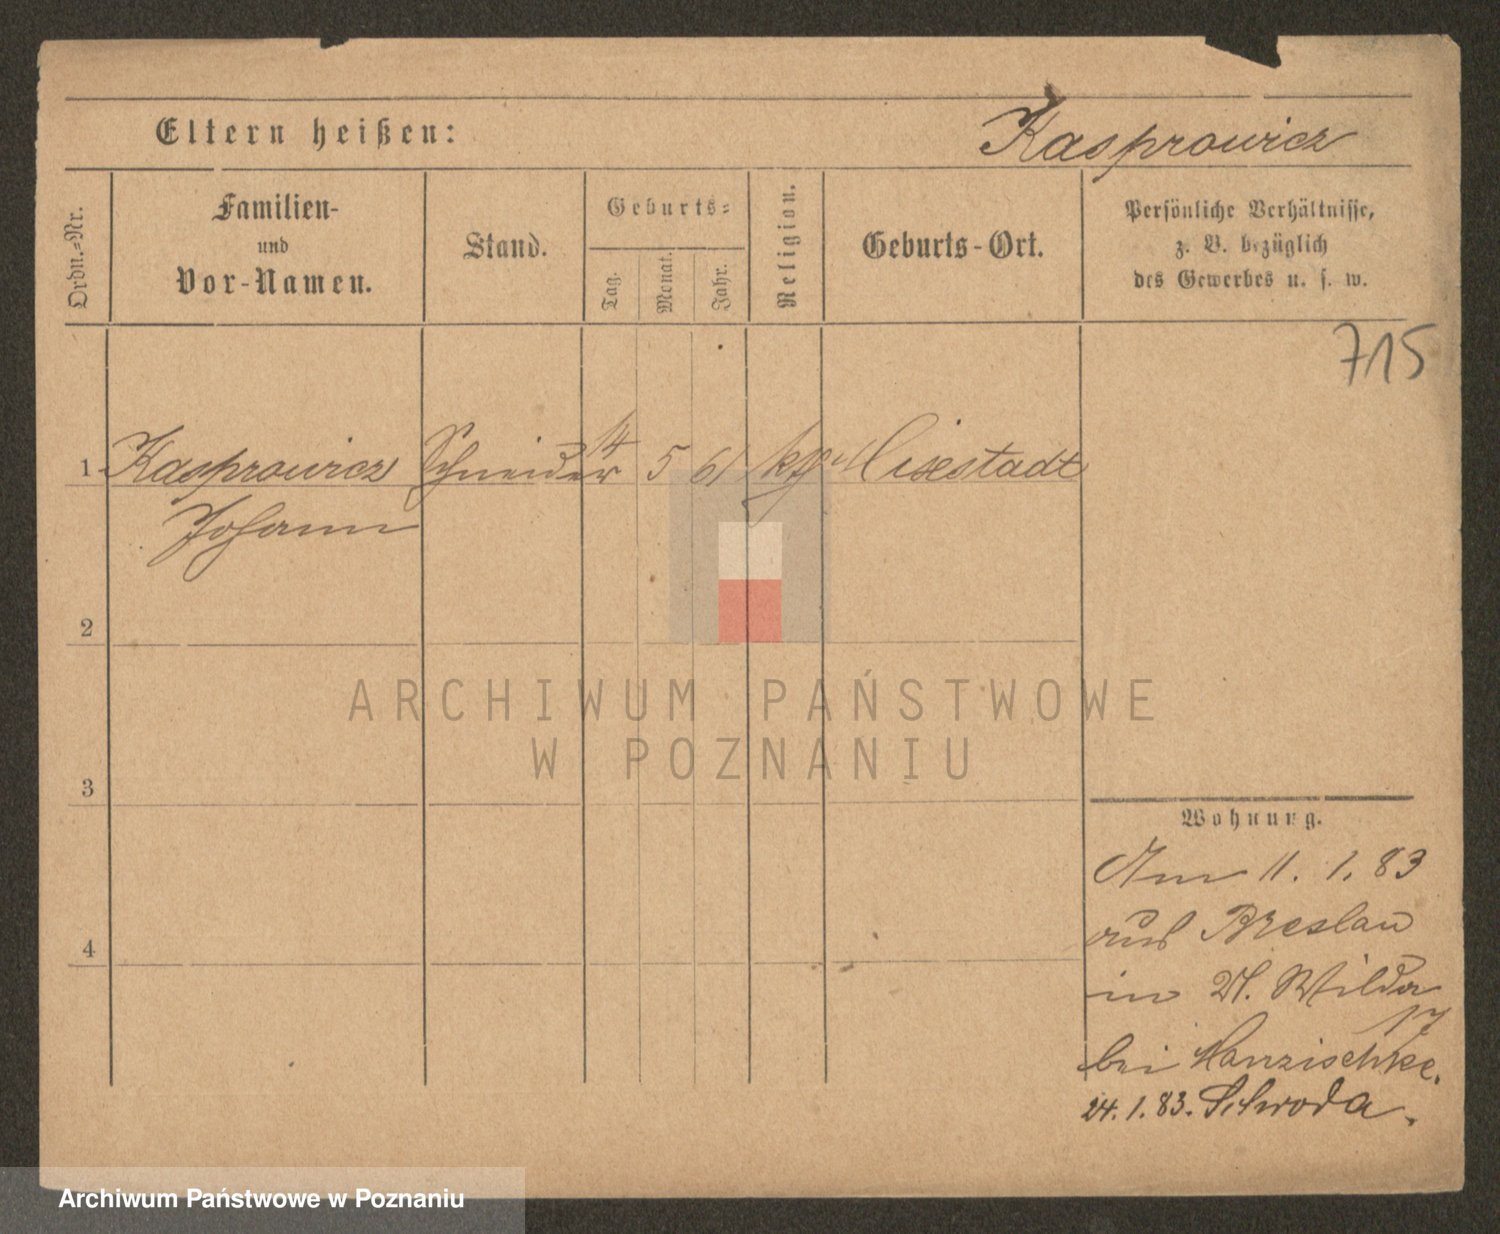 Eltern heißen: Kasprowicz
Ordn.-Nr.
Familien-
und
Vor-Namen.
Stand.
Geburts-
Tag.
Monat.
Jahr.
Religion.
Geburts-Ort.
Persönliche Verhältnisse,
z. B. bezüglich
des Gewerbes u. s. w.
715
1 Kasprowicz Schneider 14 5 61 kth
Johann
2
3
4
Wohnung.
Am 11. 1. 83
aus Breslau
in St. Wilda
17
bei
24. 1. 83. Schroda.
ARCHIWUM PAŃSTWOWE
W POZNANIU
Archiwum Państwowe w Poznaniu